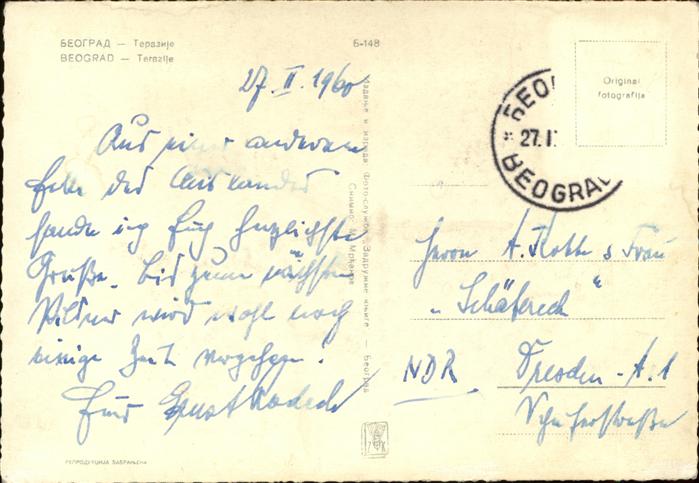 БЕОГРАД — Теразије
BEOGRAD — Terazije
Б-148
27. II. 1960
Aus einer anderen
Ecke des Auslandes
sende ich Euch herzlichste
Grüße. Bis zum nächsten
wird wohl noch
einige Zeit vergehen!
Euer Ernst
РЕПРОДУКЦИЈА ЗАБРАЊЕНА
Издање и израда Фото-служба — Задружне књиге — Београд
Снимио: М.
Original
fotografija
БЕО
27.I
BEOGRAD
Herrn A. Kotte & Frau
„Schäfereck“
NDR Dresden-A.1
Schäferstraße